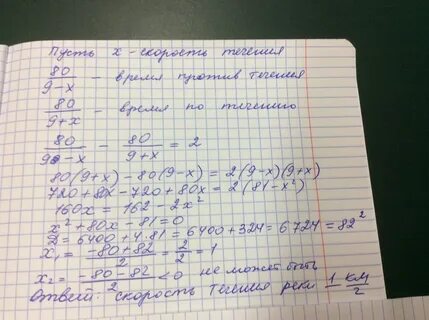 Пусть x - скорость течения
80/(9-x) - время против течения
80/(9+x) - время по течению
80/(9-x) - 80/(9+x) = 2
80(9+x) - 80(9-x) = 2(9-x)(9+x)
720+80x-720+80x = 2(81-x²)
160x = 162 - 2x²
x²+80x-81=0
D = 6400+4·81 = 6400+324 = 6724 = 82²
x₁ = (-80+82)/2 = 2/2 = 1
x₂ = (-80-82)/2 <0 не может быть
Ответ: скорость течения реки 1 км/г